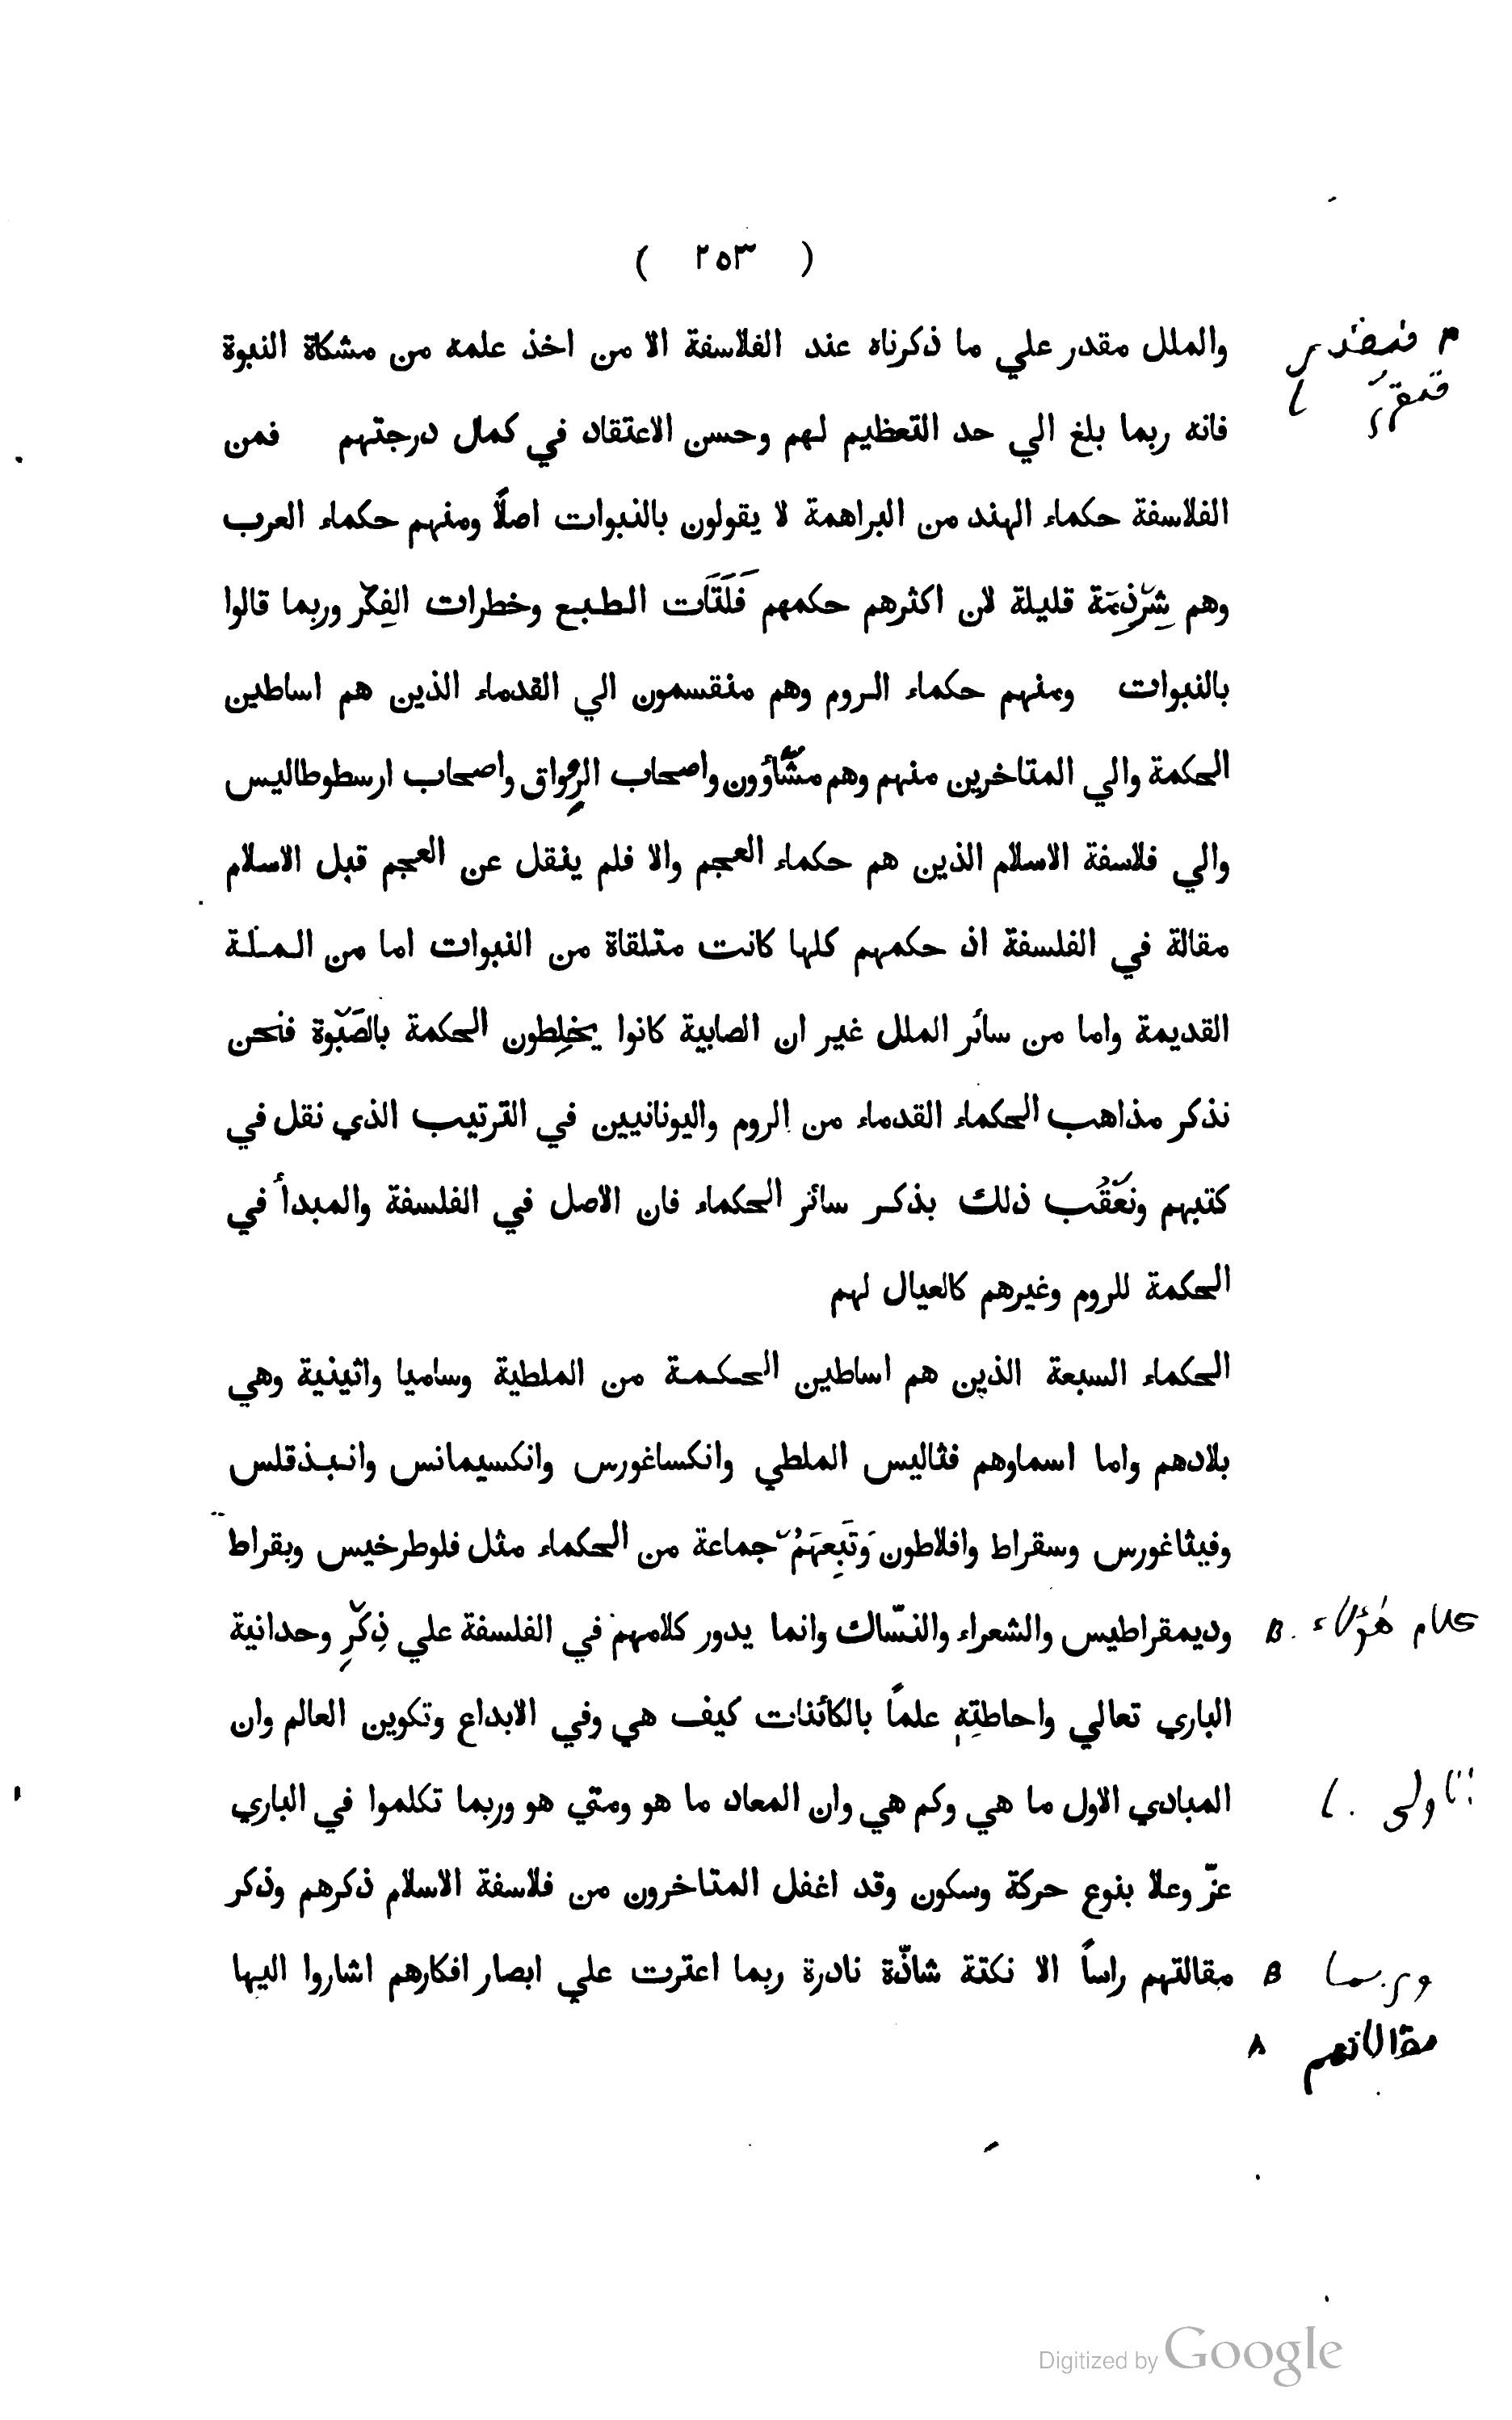 ( ٢٥٣ )
والملل مقدر علي ما ذكرناه عند الفلاسفة الا من اخذ علمه من مشكاة النبوة
فانه ربما بلغ الي حد التعظيم لهم وحسن الاعتقاد في كمال درجتهم فمن
الفلاسفة حكماء الهند من البراهمة لا يقولون بالنبوات اصلًا ومنهم حكماء العرب
وهم شِرْذِمَة قليلة لان اكثرهم حكمهم فَلَتَات الطبع وخطرات الفِكْر وربما قالوا
بالنبوات ومنهم حكماء الروم وهم منقسمون الي القدماء الذين هم اساطين
الحكمة والي المتاخرين منهم وهم مشّاؤون واصحاب الرِواق واصحاب ارسطوطاليس
والي فلاسفة الاسلام الذين هم حكماء العجم والا فلم ينقل عن العجم قبل الاسلام
مقالة في الفلسفة اذ حكمهم كلها كانت متلقاة من النبوات اما من الملة
القديمة واما من سائر الملل غير ان الصابية كانوا يخلِطون الحكمة بالصَبْوة فنحن
نذكر مذاهب الحكماء القدماء من الروم واليونانيين في الترتيب الذي نقل في
كتبهم ونعَقُب ذلك بذكر سائر الحكماء فان الاصل في الفلسفة والمبدأ في
الحكمة للروم وغيرهم كالعيال لهم
الحكماء السبعة الذين هم اساطين الحكمة من الملطية وساميا واثينية وهي
بلادهم واما اسماوهم فثاليس الملطي وانكساغورس وانكسيمانس وانبذقلس
وفيثاغورس وسقراط وافلاطون وَتَبِعَهَمُْ جماعة من الحكماء مثل فلوطرخيس وبقراط
كلام هؤلاء B. وديمقراطيس والشعراء والنسّاك وانما يدور كلامهم في الفلسفة علي ذِكْرِ وحدانية
الباري تعالي واحاطتِهِ علمًا بالكائنات كيف هي وفي الابداع وتكوين العالم وان
المبادي الاول ما هي وكم هي وان المعاد ما هو ومتي هو وربما تكلموا في الباري
عزّ وعلا بنوع حركة وسكون وقد اغفل المتاخرون من فلاسفة الاسلام ذكرهم وذكر
وربما B مقالتهم راسًا الا نكتة شاذّة نادرة ربما اعترت علي ابصار افكارهم اشاروا اليها
مقالاتهم
Digitized by Google